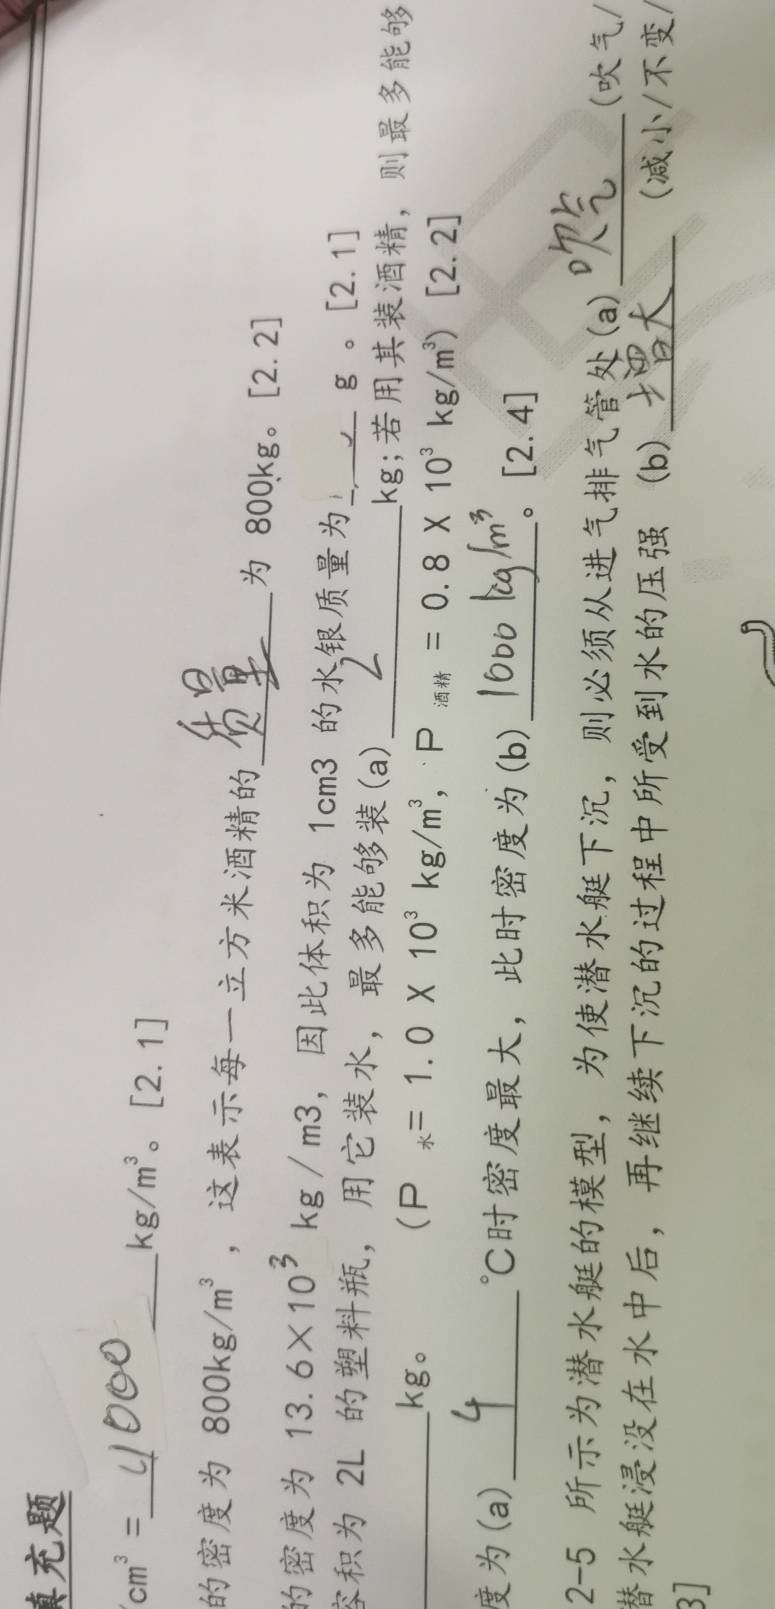 填充题
cm³ = 4000 kg/m³。[2.1]
的密度为 800kg/m³，这表示每一立方米酒精的 质量 为 800kg。[2.2]
的密度为 13.6×10³ kg/m3，因此体积为 1cm3 的水银质量为 g。[2.1]
容积为 2L 的塑料瓶，用它装水，最多能够装(a) 2 kg；若用其装酒精，则最多能够
kg。 (P 水= 1.0 X 10³ kg/m³，P 酒精 = 0.8 X 10³ kg/m³) [2.2]
度为(a) 4 °C时密度最大，此时密度为(b) 1000 kg/m³。[2.4]
2-5 所示为潜水艇的模型，为使潜水艇下沉，则必须从进气排气管处(a) 吹气 (吹气/
潜水艇浸没在水中后，再继续下沉的过程中所受到水的压强 (b) 增大 (减小/不变/
3]